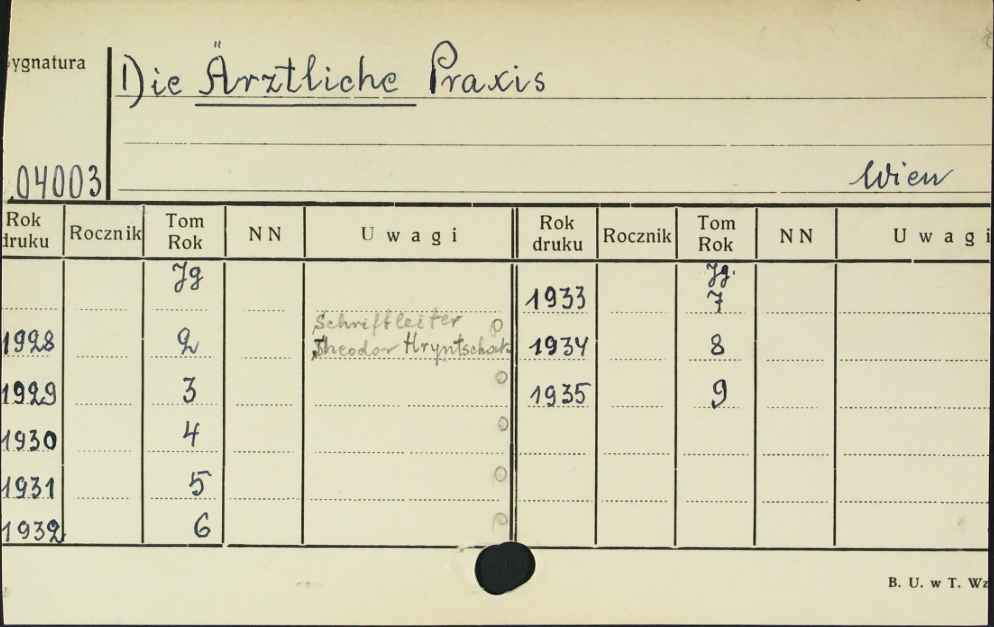 Sygnatura
Die Ärztliche Praxis
04003
Wien
Rok druku Rocznik Tom Rok NN Uwagi Rok druku Rocznik Tom Rok NN Uwagi
Jg Jg.
1933 7
Schriftleiter
1928 2 Theodor Hryntschak 1934 8
1929 3 1935 9
1930 4
1931 5
1932 6
B. U. w T. Wz